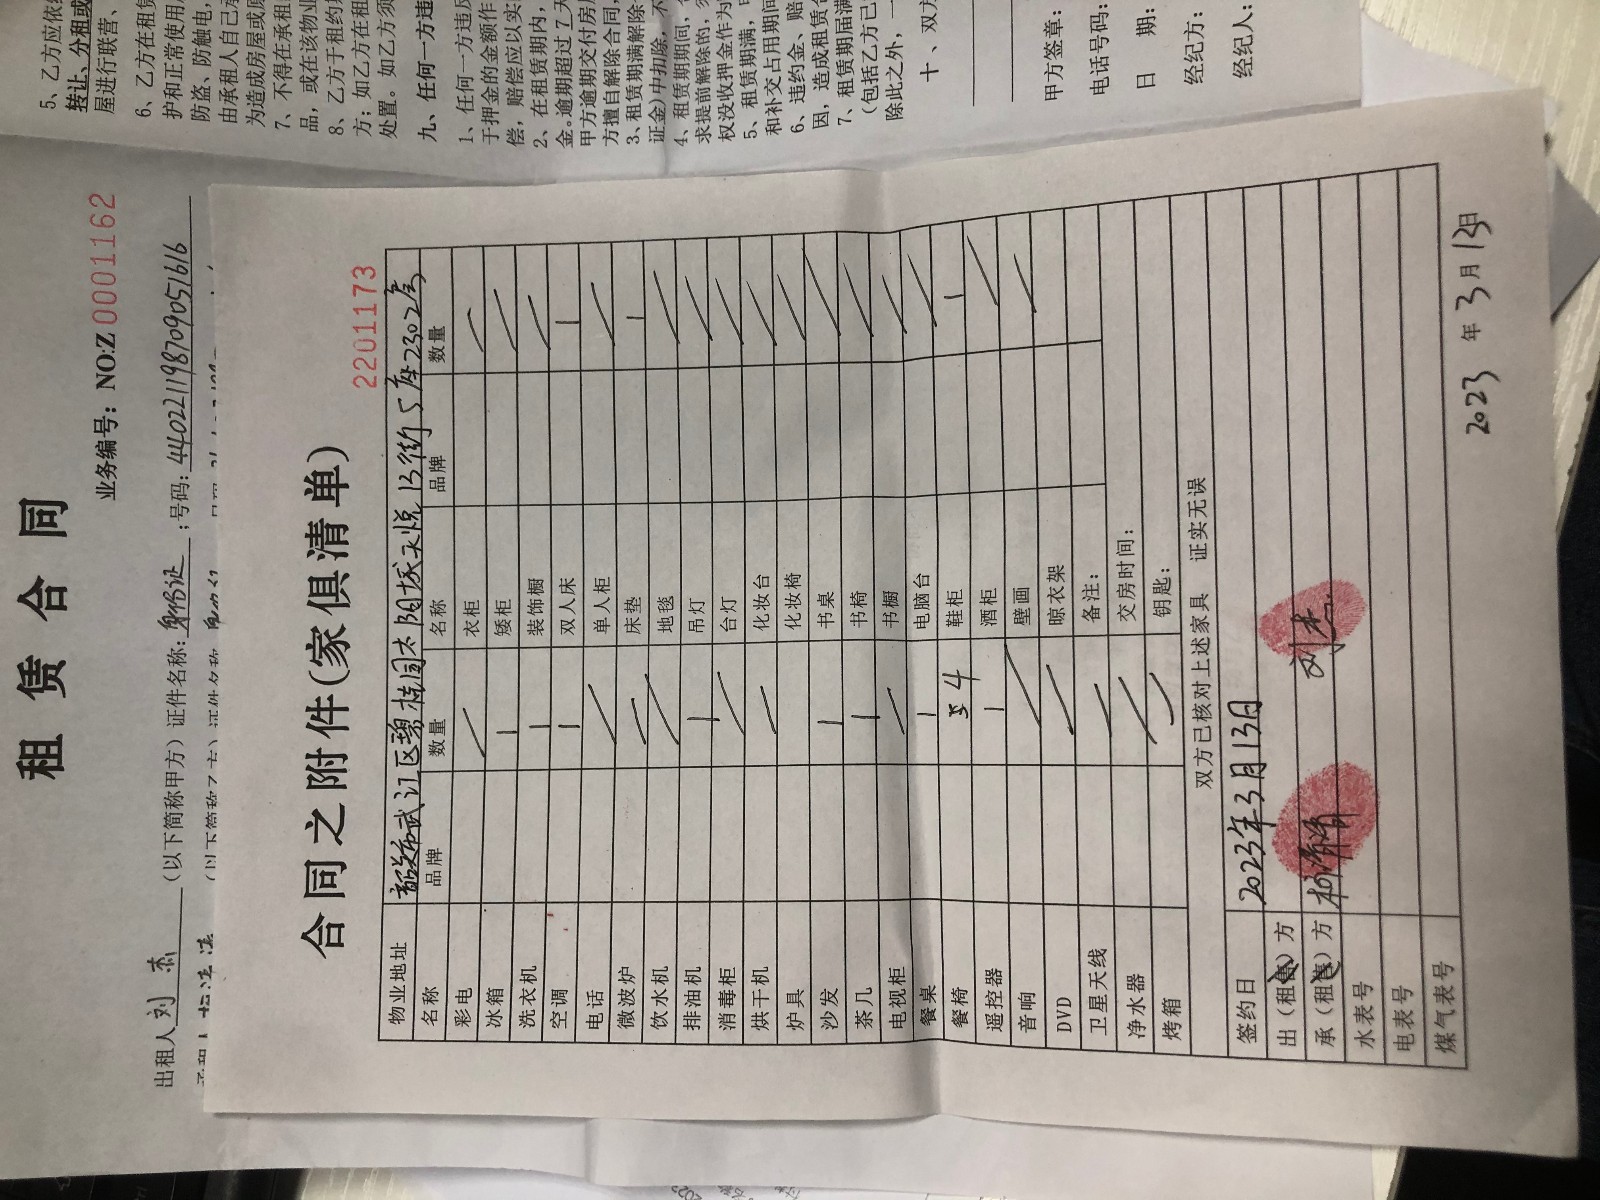 租赁合同
业务编号：NO:Z 0001162
出租人刘杰（以下简称甲方）证件名称:身份证；号码:440221198709051616
合同之附件(家俱清单)
2201173
物业地址 韶关市武江区碧桂园太阳城天悦13街5座2302房
名称 品牌 数量 名称 品牌 数量
彩电 / 衣柜 /
冰箱 1 矮柜 /
洗衣机 1 装饰橱 /
空调 1 双人床 1
电话 / 单人柜 /
微波炉 / 床垫 1
饮水机 / 地毯 /
排油机 1 吊灯 /
消毒柜 / 台灯 /
烘干机 / 化妆台 /
炉具 化妆椅 /
沙发 1 书桌 /
茶几 1 书椅 /
电视柜 / 书橱 /
餐桌 1 电脑台 /
餐椅 4 鞋柜 1
遥控器 1 酒柜 /
音响 / 壁画 /
DVD / 晾衣架
卫星天线 / 备注：
净水器 / 交房时间：
烤箱 / 钥匙：
双方已核对上述家具 证实无误
签约日 2023年3月13日
出（租售）方
承（租售）方 刘杰
水表号
电表号
煤气表号
2023 年 3 月 13日
5、乙方应依
转让、分租或
屋进行联营、
6、乙方在租赁
护和正常使用
防盗、防触电，
由承租人自己承
为造成房屋或
7、不得在承租
品，或在该物业
8、乙方于租约
方；如乙方在租
处置。如乙方须
九、任何一方违
1、任何一方违反
于押金的金额作
偿，赔偿应以实
2、在租赁期内，
金。逾期超过 7 天
甲方逾期交付房
方擅自解除合同，
3、租赁期满解除
证金)中扣除，不
4、租赁期期间，
求提前解除的，
权没收押金作为
5、租赁期满，
和补交占用期间
6、违约金、赔
因，造成租赁
7、租赁期届满
（包括乙方已
除此之外，一
十、双方
甲方签章：
电话号码：
日 期：
经纪方：
经纪人：